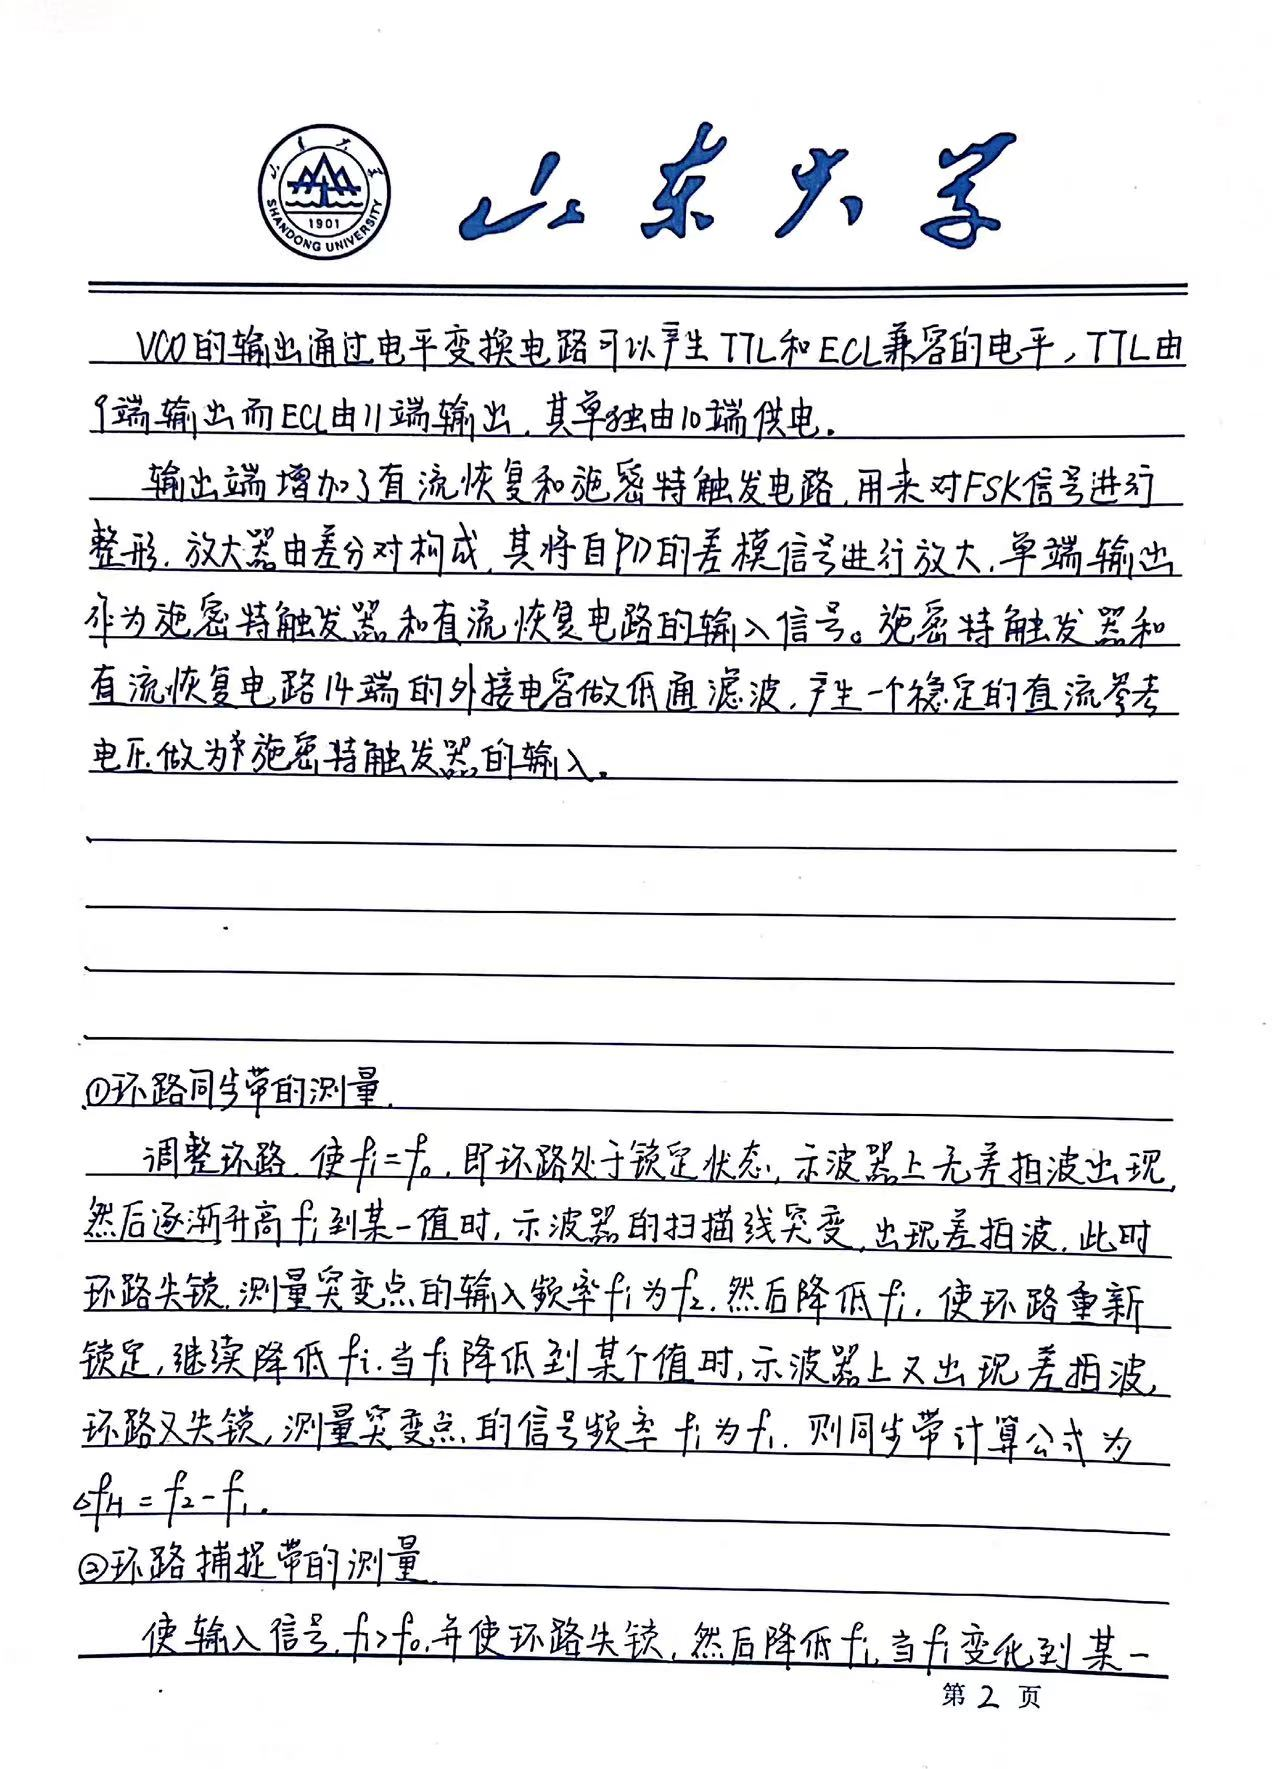 山东大学
山东大学
1901
SHANDONG UNIVERSITY
VCO的输出通过电平变换电路可以产生TTL和ECL兼容的电平，TTL由
9端输出而ECL由11端输出，其单独由10端供电。
输出端增加了直流恢复和施密特触发电路，用来对FSK信号进行
整形，放大器由差分对构成，其将自PD的差模信号进行放大，单端输出
作为施密特触发器和直流恢复电路的输入信号。施密特触发器和
直流恢复电路14端的外接电容做低通滤波，产生一个稳定的直流参考
电压做为施密特触发器的输入。
①环路同步带的测量.
调整环路，使fi=fo，即环路处于锁定状态，示波器上无差拍波出现，
然后逐渐升高fi到某一值时，示波器的扫描线突变，出现差拍波，此时
环路失锁，测量突变点的输入频率fi为f2，然后降低fi，使环路重新
锁定，继续降低fi.当fi降低到某个值时，示波器上又出现差拍波，
环路又失锁，测量突变点的信号频率fi为f1.则同步带计算公式为
ΔfH=f2-f1.
②环路捕捉带的测量.
使输入信号，fi>fo，并使环路失锁，然后降低fi，当fi变化到某一
第2页